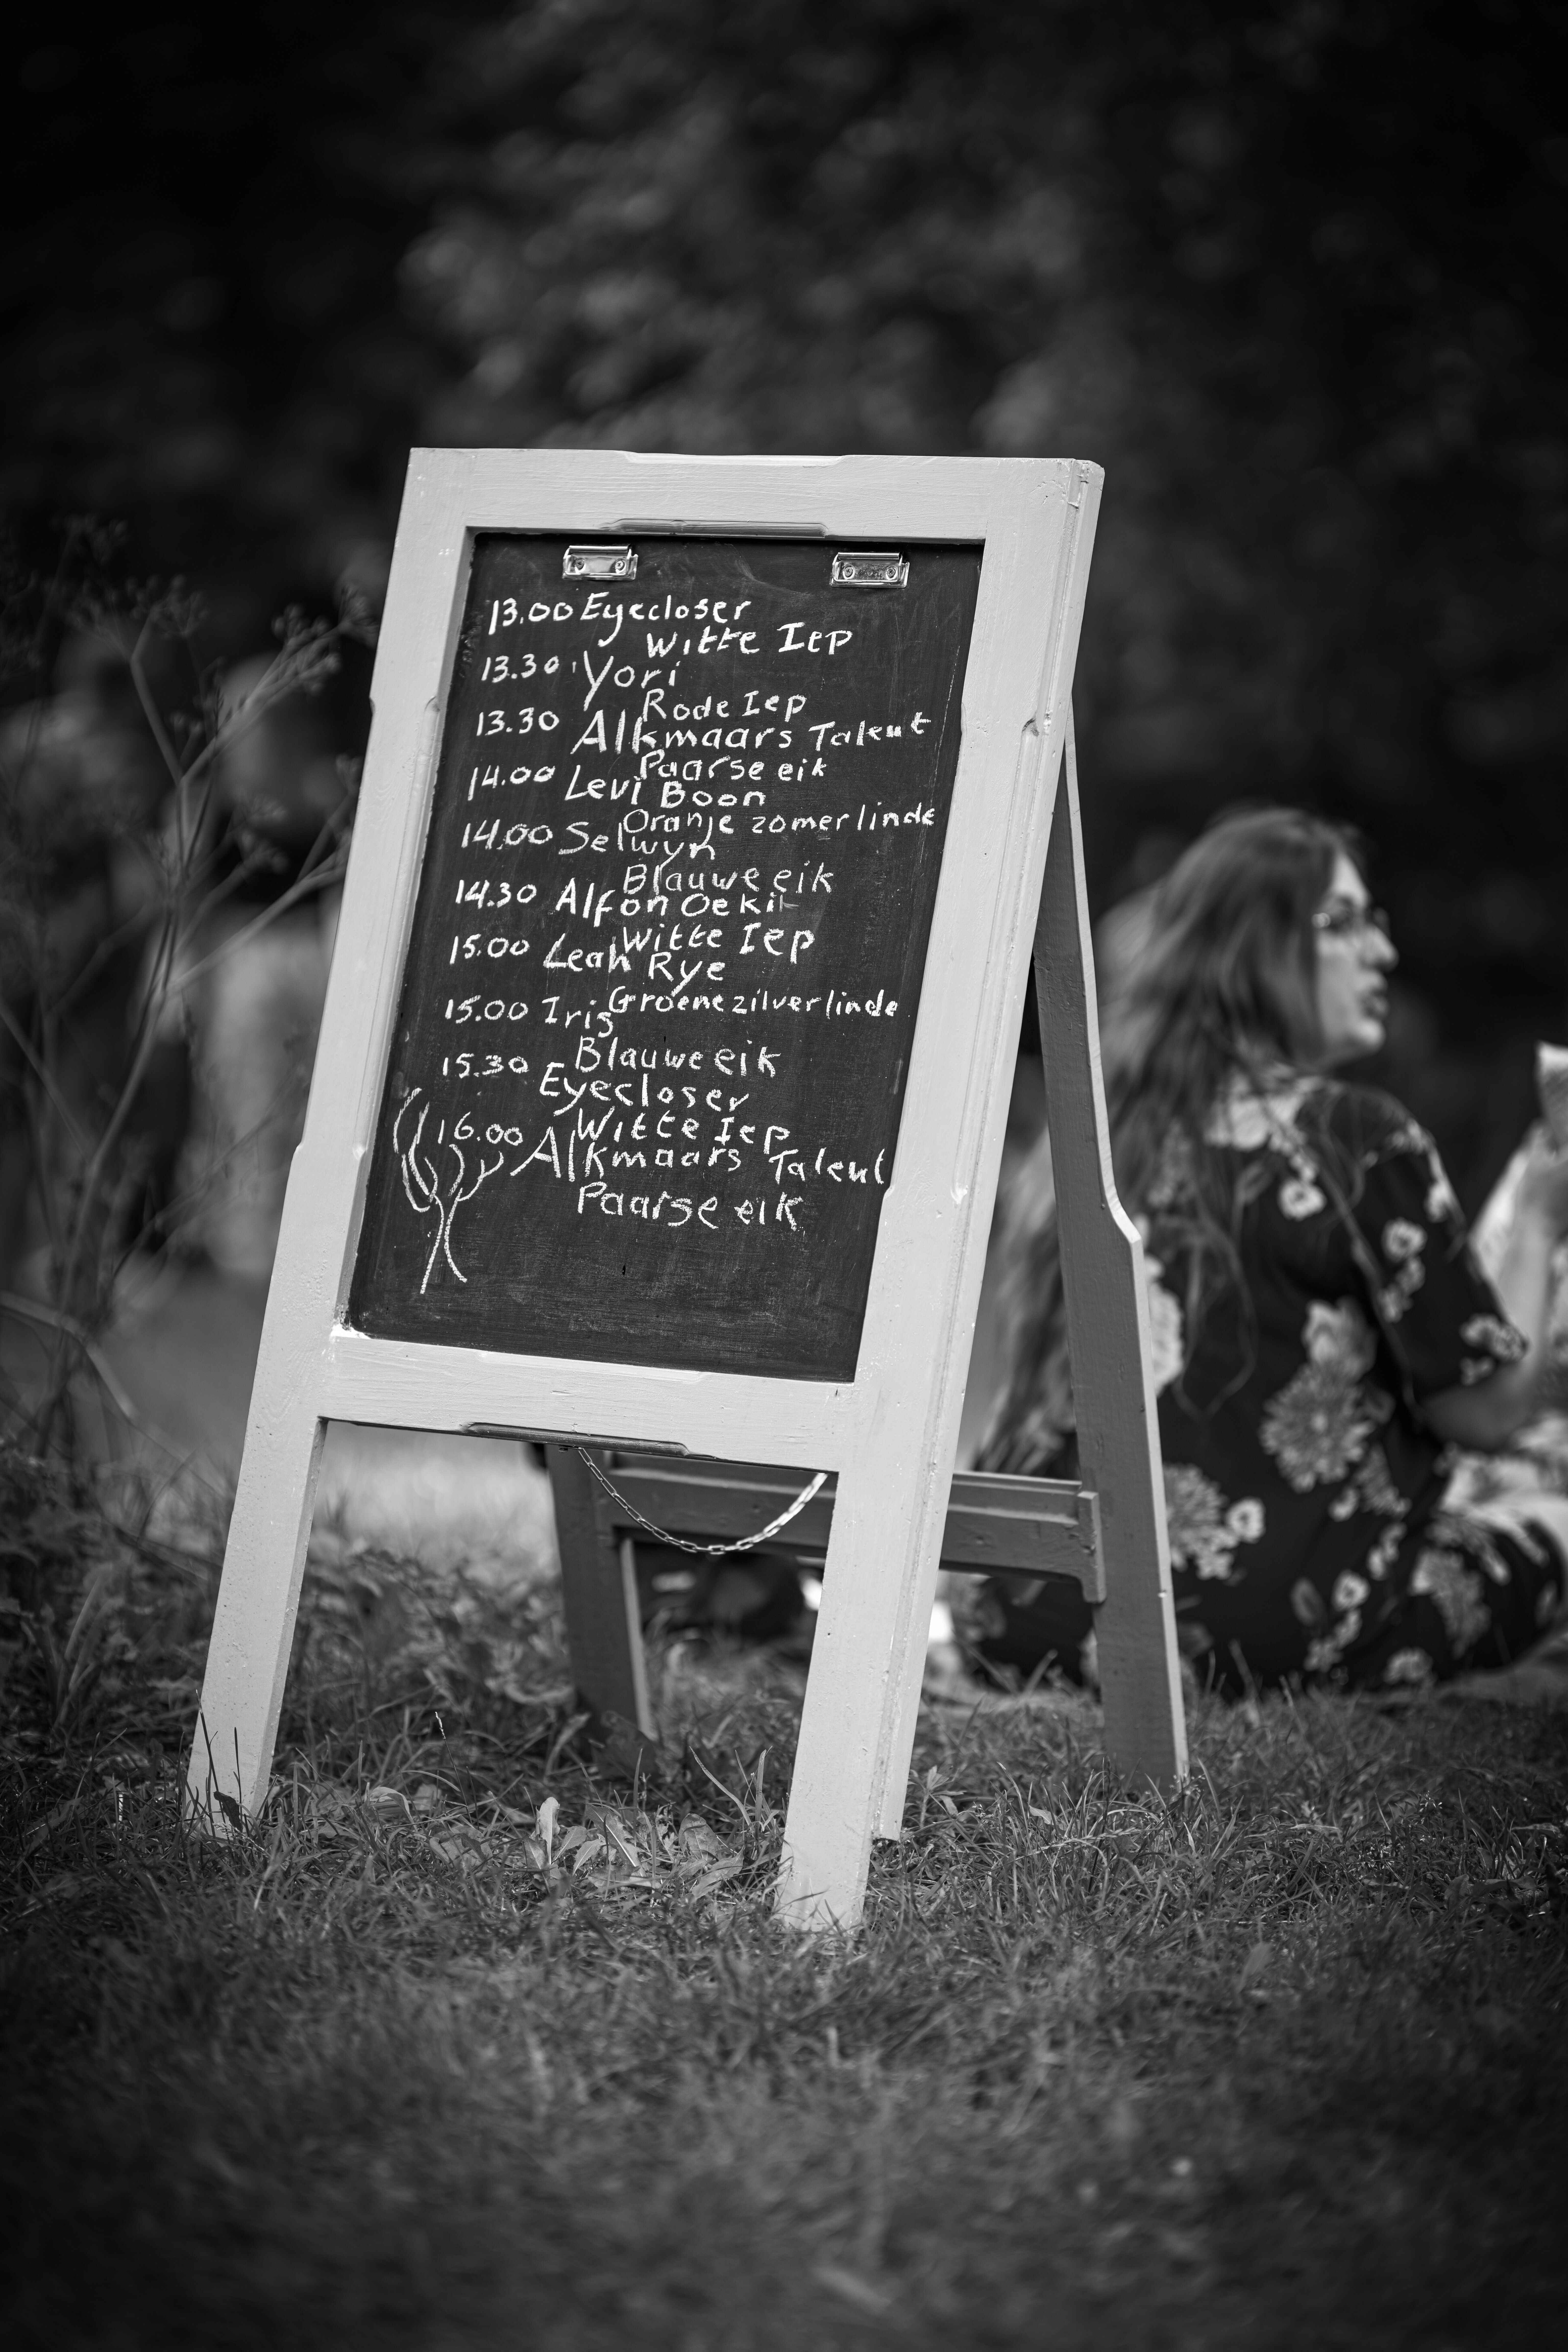 13.00 Eyecloser
Witte Iep
13.30 Yori
Rode Iep
13.30 Alkmaars Talent
Paarse eik
14.00 Levi Boon
Oranje zomerlinde
14.00 Selwyn
Blauwe eik
14.30 Alfon Oekit
Witte Iep
15.00 Leah Rye
Groene zilverlinde
15.00 Iris
Blauwe eik
15.30 Eyecloser
Witte Iep
16.00 Alkmaars Talent
Paarse eik